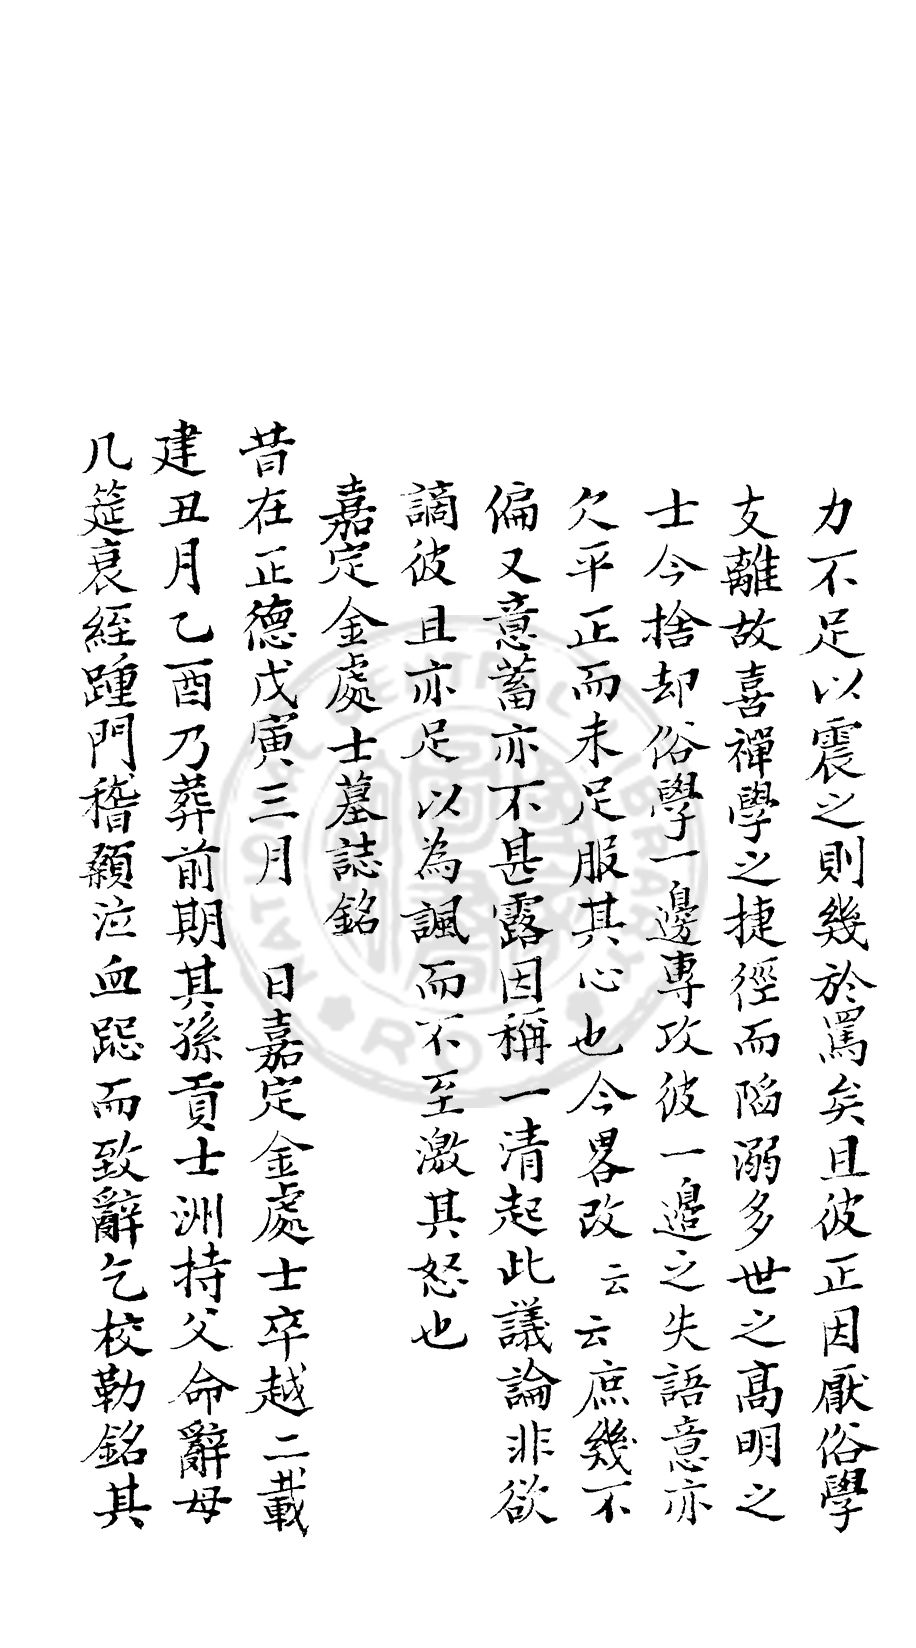 力不足以震之則幾於罵矣且彼正因厭俗學
支離故喜禪學之捷徑而陷溺多世之高明之
士今捨却俗學一邊專攻彼一邊之失語意亦
欠平正而未足服其心也今畧改云云庶幾不
偏又意蓄亦不甚露因稱一清起此議論非欲
謫彼且亦足以為諷而不至激其怒也
嘉定金處士墓誌銘
昔在正德戊寅三月 日嘉定金處士卒越二載
建丑月乙酉乃葬前期其孫貢士洲持父命辭母
几筵衰絰踵門稽顙泣血跽而致辭乞校勒銘其
NATIONAL CENTRAL LIBRARY